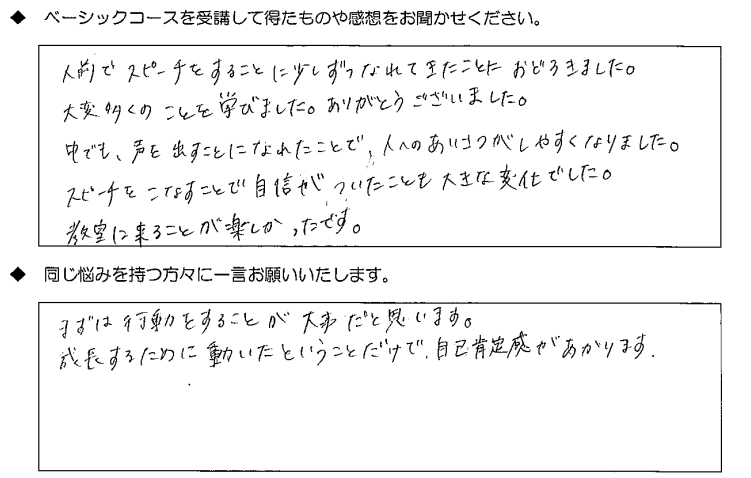 ◆ ベーシックコースを受講して得たものや感想をお聞かせください。
人前でスピーチをすることに少しずつなれてきたことにおどろきました。
大変多くのことを学びました。ありがとうございました。
中でも、声を出すことになれたことで、人へのあいさつがしやすくなりました。
スピーチをこなすことで自信がついたことも大きな変化でした。
教室に来ることが楽しかったです。
◆ 同じ悩みを持つ方々に一言お願いいたします。
まずは行動をすることが大事だと思います。
成長するために動いたということだけで、自己肯定感があがります.